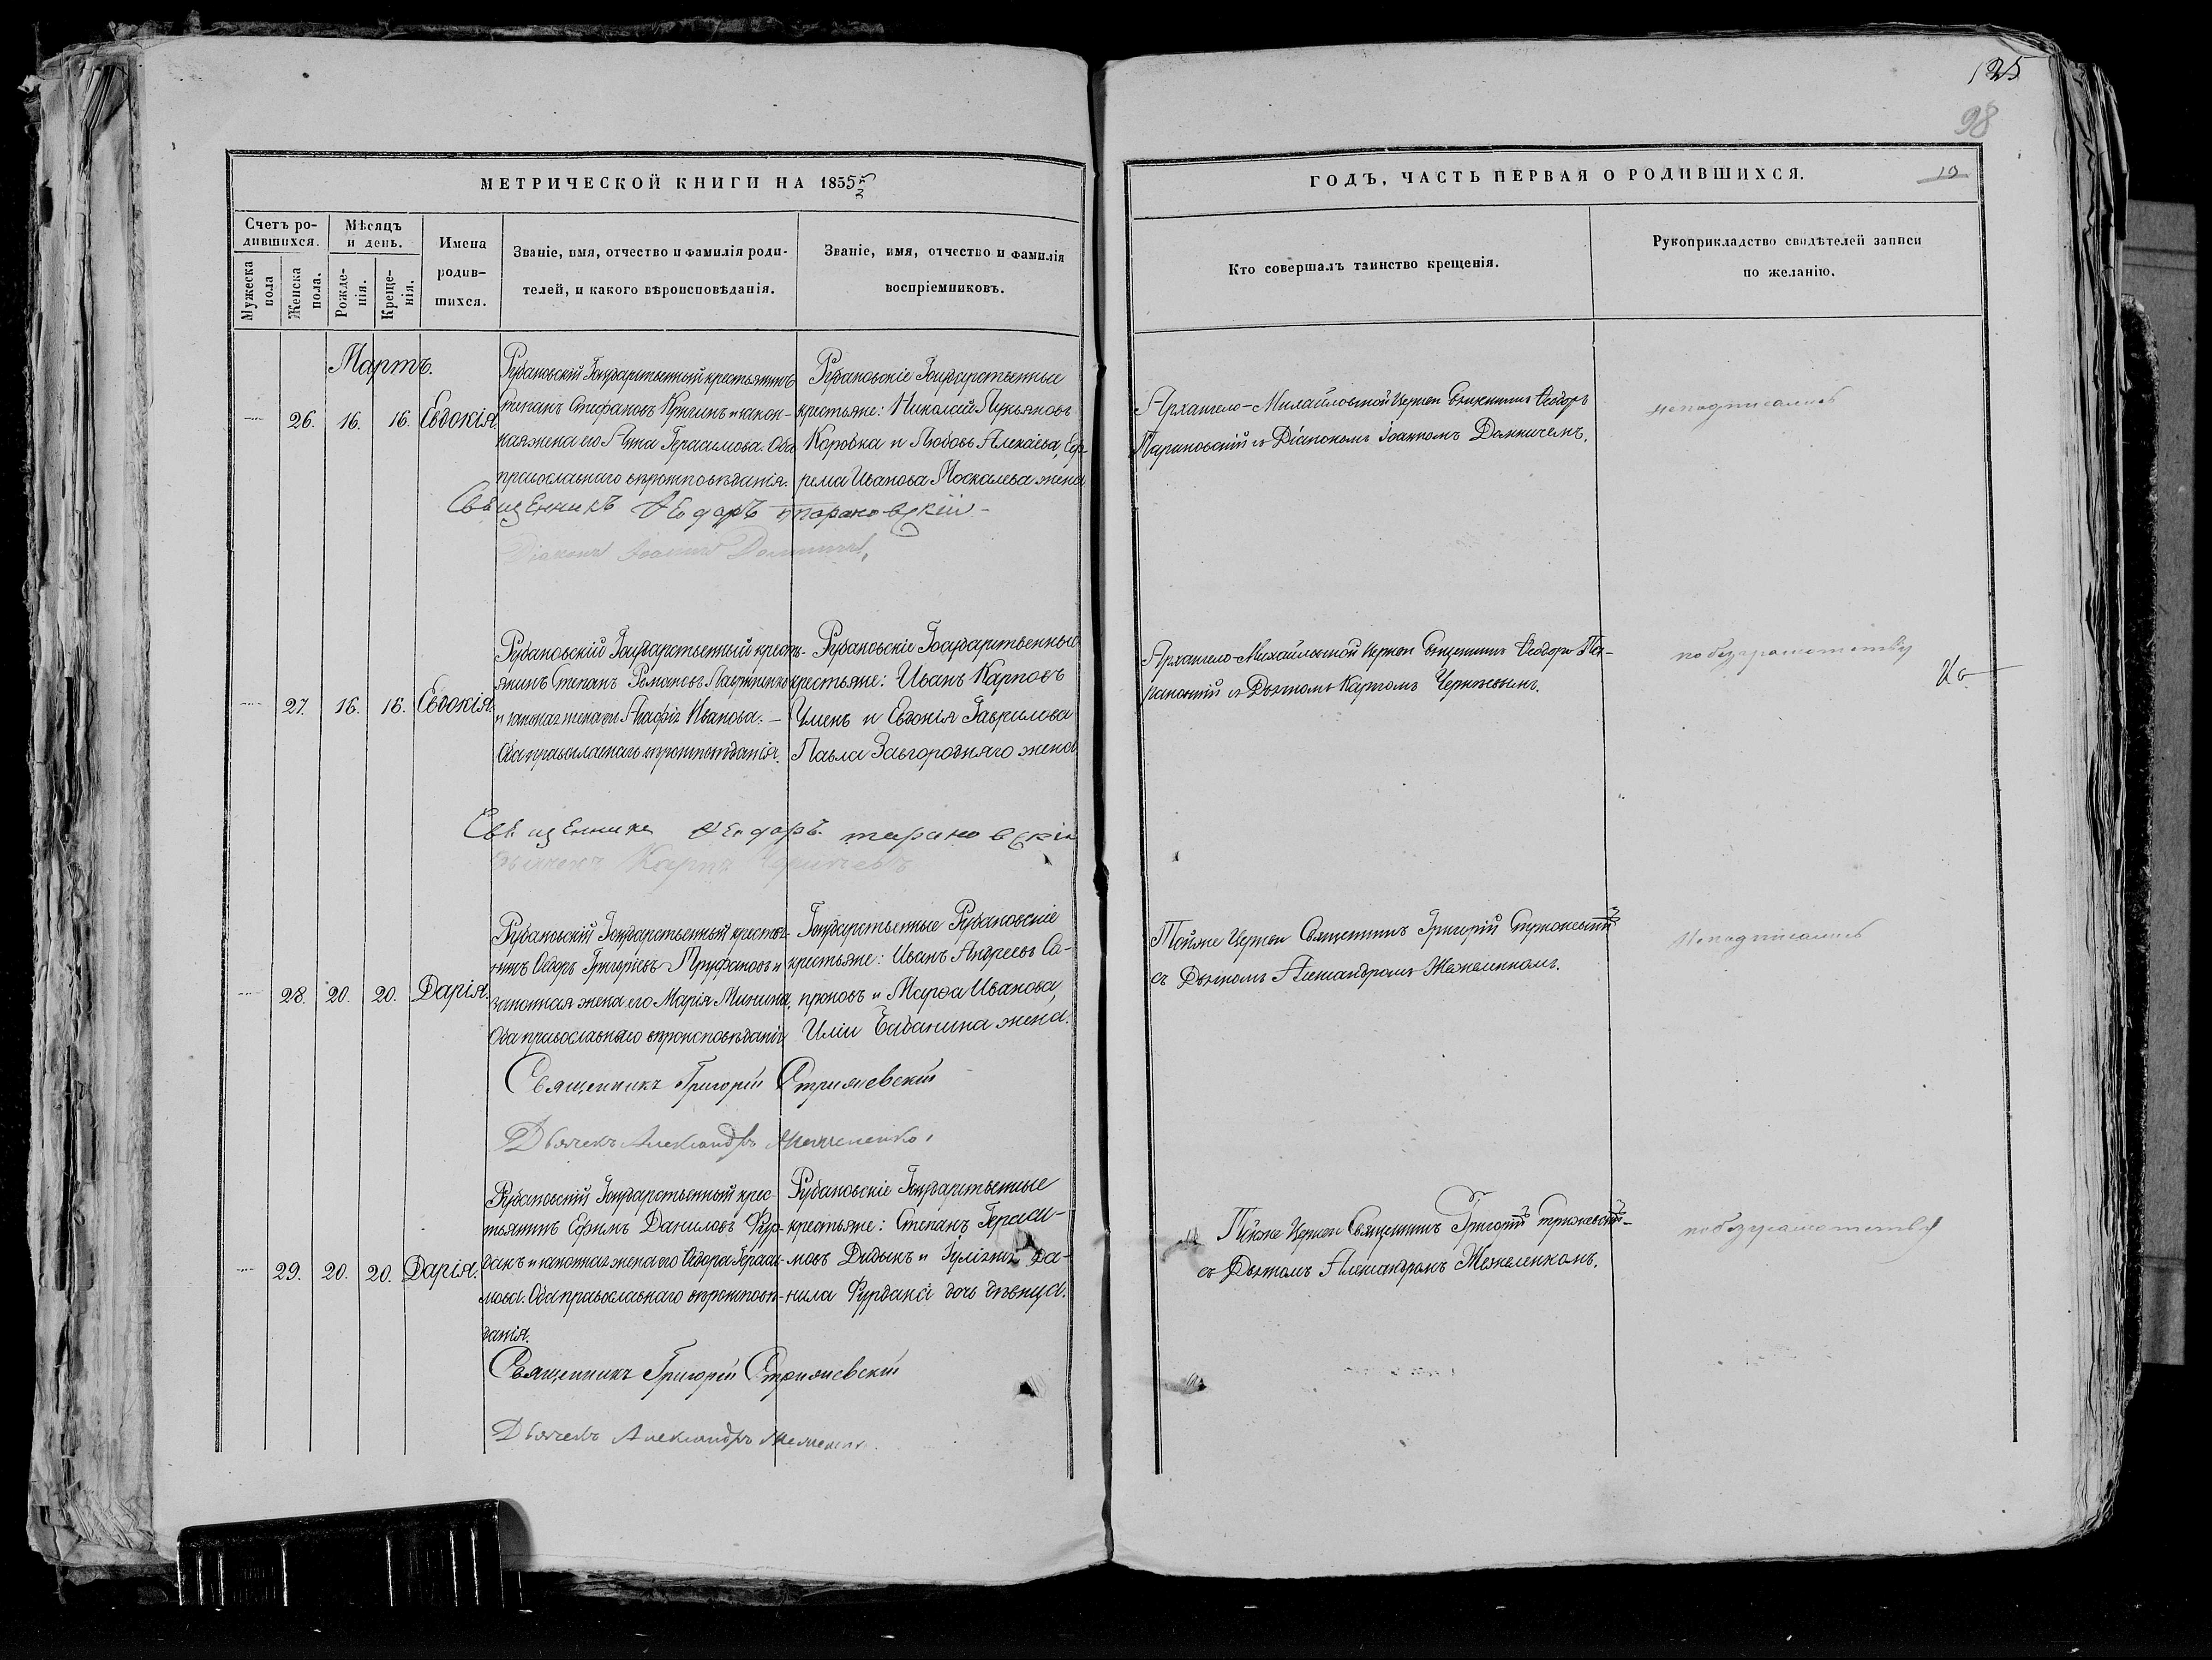 125
98
МЕТРИЧЕСКОЙ КНИГИ НА 1855й
Счетъ ро-
дившихся.
Мужеска пола
Женска пола.
Мѣсяцъ
и день.
Рожде-
нія.
Креще-
нія.
Имена
родив-
шихся.
Званіе, имя, отчество и фамилія роди-
телей, и какого вѣроисповѣданія.
Званіе, имя, отчество и фамилія
воспріемниковъ.
ГОДЪ, ЧАСТЬ ПЕРВАЯ О РОДИВШИХСЯ.
10
Кто совершалъ таинство крещенія.
Рукоприкладство свидѣтелей записи
по желанію.
Мартъ.
26. 16. 16. Евдокія
Рубановскій Государственный крестьянинъ
Степанъ Стефановъ и закон-
ная жена его Анна Герасимова. Оба
православнаго вѣроисповѣданія.
Рубановскіе Государственные
крестьяне: Николай Лукьяновъ
Коровка и Любовь Алексіева, Еф-
рема Иванова Москалева жена
Архангело-Михайловской Церкви Священникъ Ѳеодоръ
Тарановскій съ Діакономъ Іоанномъ
неподписались
Священникъ Ѳеодоръ Тарановскій
Діаконъ Іоаннъ
27. 16. 16. Евдокія.
Рубановскій Государственный кресть-
янинъ Степанъ Романовъ
и законная жена его Агафія Иванова.
Оба православнаго вѣроисповѣданія.
Рубановскіе Государственные
крестьяне: Иванъ Карповъ
и Евдокія Гаврилова
Павла Завгородняго жена
Архангело-Михайловской Церкви Священникъ Ѳеодоръ Та-
рановскій съ Дьячкомъ Карпомъ
по безграмотству
Священникъ Ѳеодоръ Тарановскій
Дьячекъ Карпъ
28. 20. 20. Дарія.
Рубановскій Государственный крестья-
нинъ Ѳедоръ Григорьевъ Труфановъ и
законная жена его Марія Минина.
Оба православнаго вѣроисповѣданія
Государственные Рубановскіе
крестьяне: Иванъ Андреевъ Са-
проновъ и Марѳа Иванова,
Иліи Бабанина жена.
Тойже Церкви Священникъ Григорій Стрижевскій
съ Дьячкомъ Александромъ Межеленкомъ.
Неподписались
Священникъ Григорій Стрижевскій
Дьячекъ Александръ Межеленко.
29. 20. 20. Дарія.
Рубановскій Государственный крес-
тьянинъ Ефимъ Даниловъ Фур-
дакъ и законная жена его Ѳедора Гераси-
мова. Оба православнаго вѣроисповѣ-
данія.
Рубановскіе Государственные
крестьяне: Степанъ Гераси-
мовъ Дидыкъ и Да-
нила Фурдака дочь дѣвица.
Тойже Церкви Священникъ Григорій Стрижевскій
съ Дьячкомъ Александромъ Межеленкомъ.
по безграмотству
Священникъ Григорій Стрижевскій
Дьячекъ Александръ Межеленко.